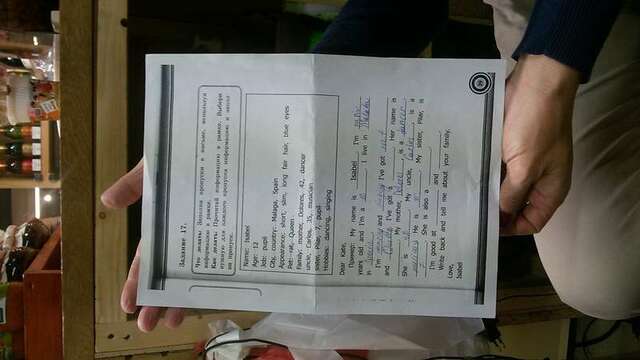 Задание 17.
Что делать: Заполни пропуски в письме, используя
информацию в рамке.
Как делать: Прочитай информацию в рамке. Выбери
нужную для каждого пропуска информацию и впиши
на пропуск.
Name: Isabel
Age: 12
Job: pupil
City, country: Malaga, Spain
Appearance: short, slim, long fair hair, blue eyes
Pet: rat, Queen
Family: mother, Dolores, 42, dancer
uncle, Carlos, 35, musician
sister, Pilar, 7, pupil
Hobbies: dancing, singing
Dear Kate,
Пример: My name is Isabel. I'm
years old and I'm a . I live in Malaga
in Spain. I'm and . I've got
and . I've got a . Her name is
. My mother, , is a dancer.
She is . My uncle, Carlos, is a
. He is . My sister, Pilar, is
. She is also a .
I'm good at and .
Write back and tell me about your family.
Love,
Isabel